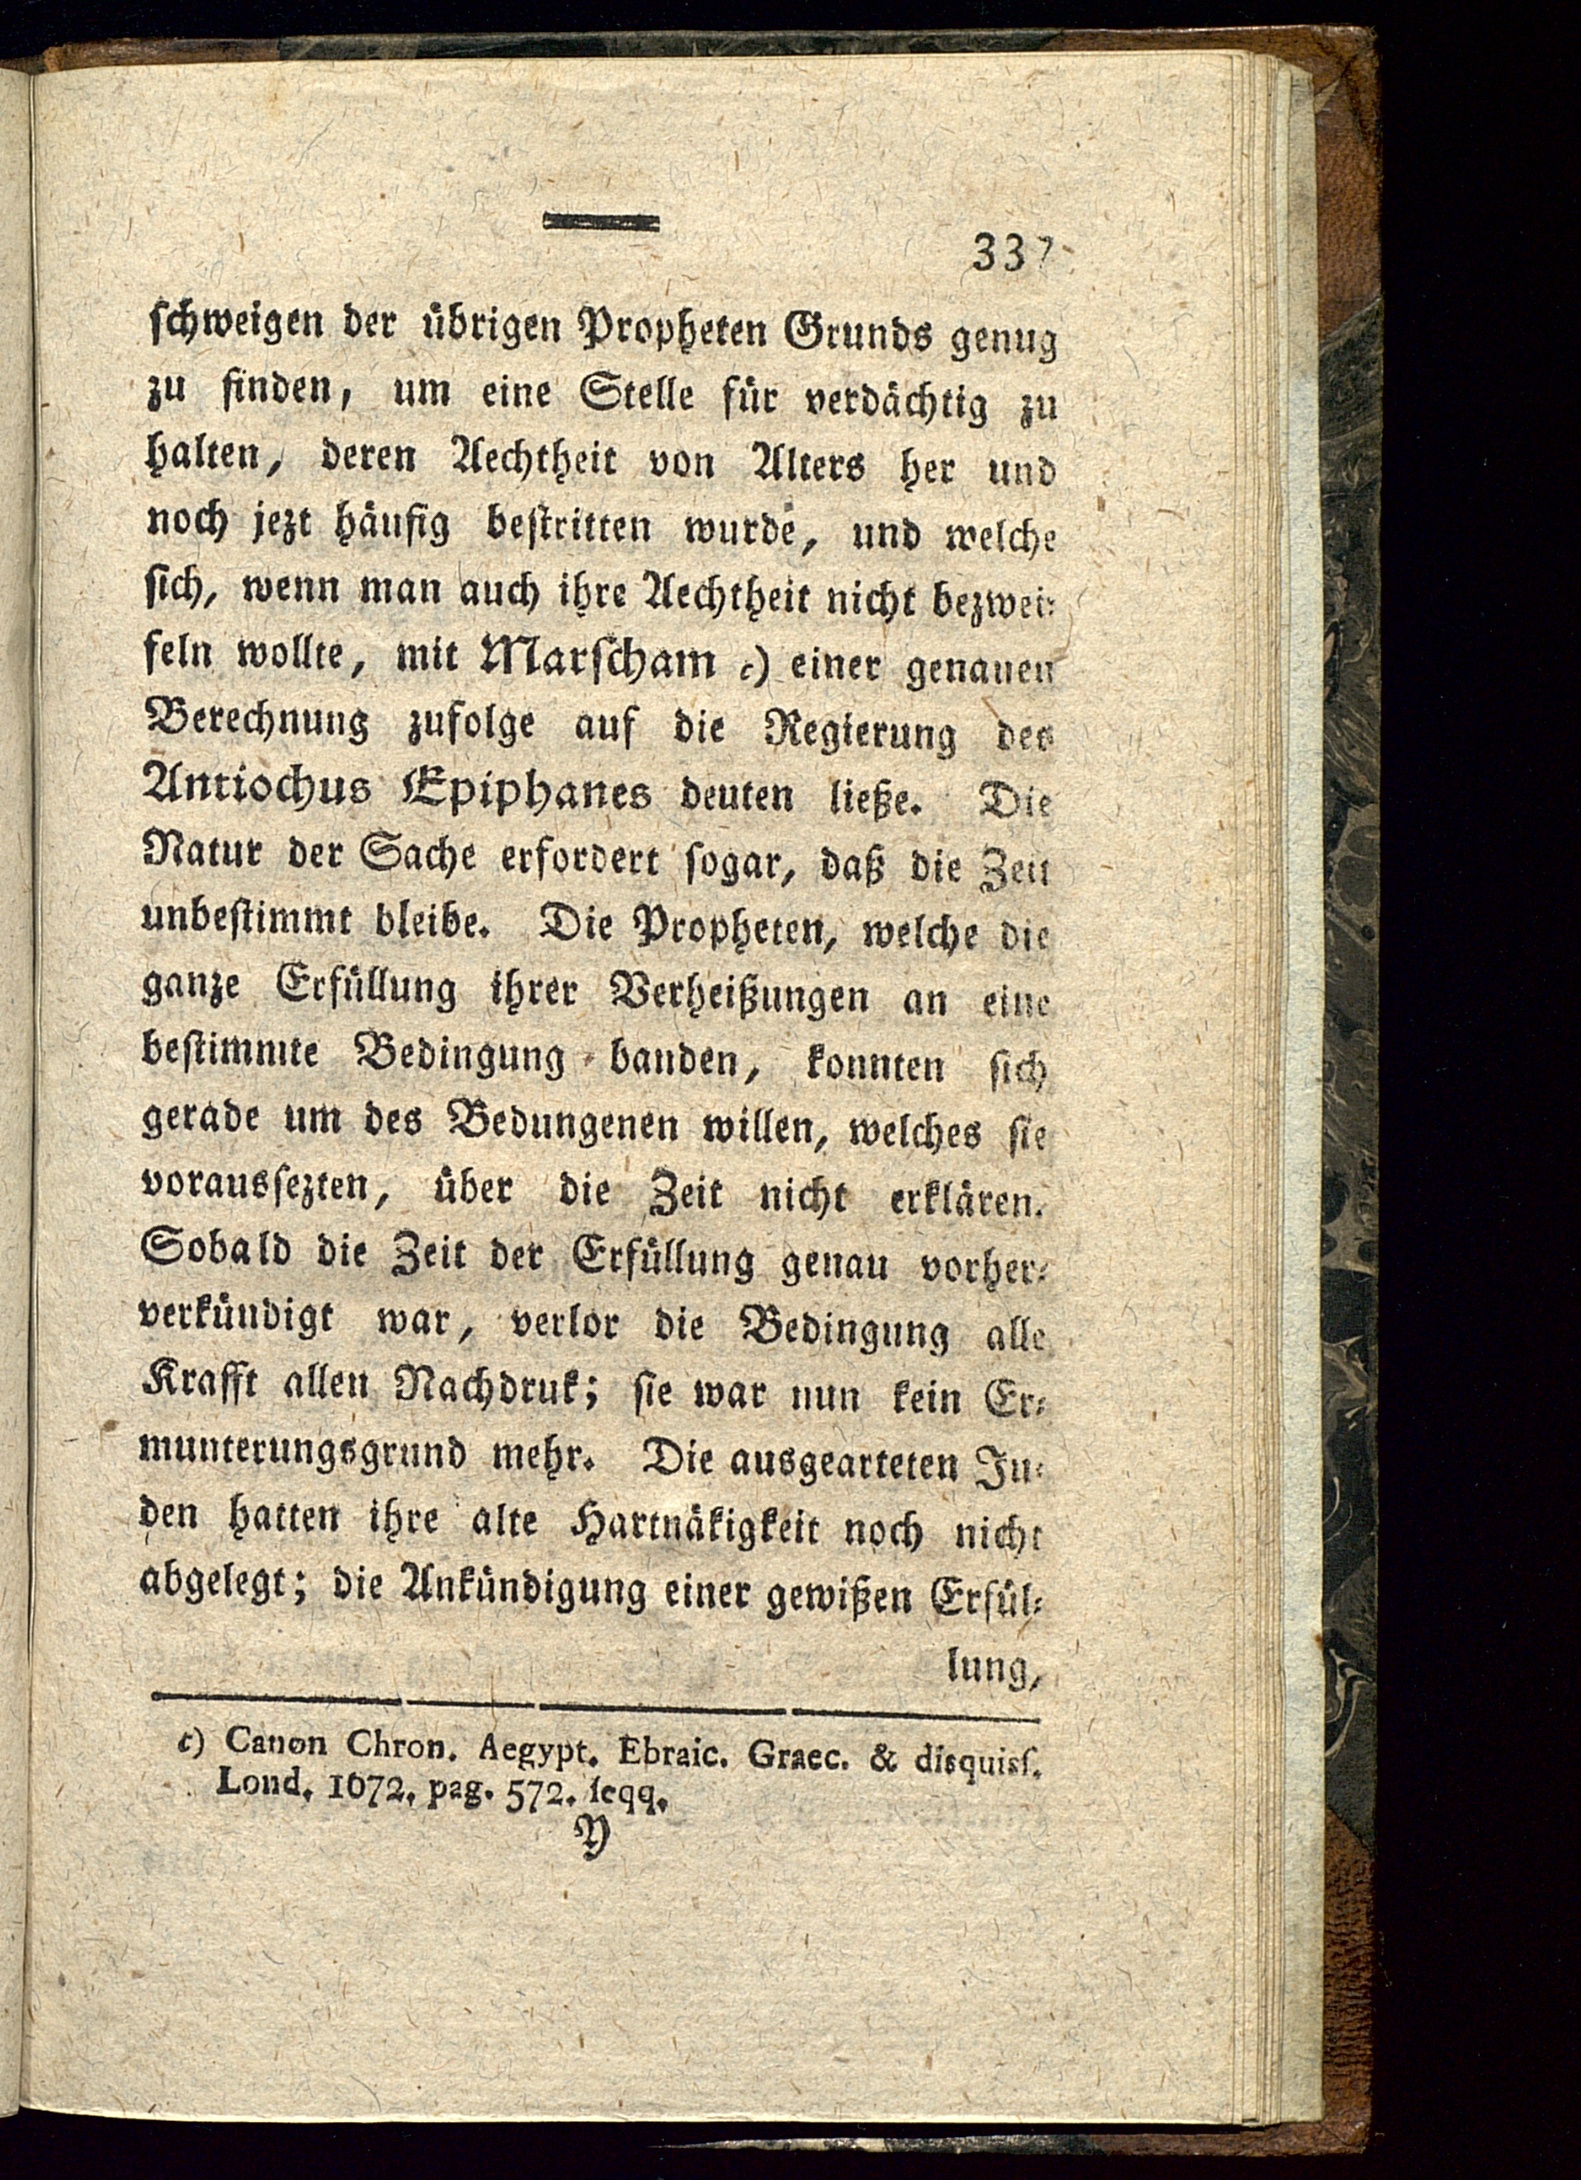 337
schweigen der übrigen Propheten Grunds genug
zu finden, um eine Stelle für verdächtig zu
halten, deren Aechtheit von Alters her und
noch jezt häufig bestritten wurde, und welche
sich, wenn man auch ihre Aechtheit nicht bezwei-
feln wollte, mit Marscham c) einer genauen
Berechnung zufolge auf die Regierung des
Antiochus Epiphanes deuten ließe. Die
Natur der Sache erfordert sogar, daß die Zeit
unbestimmt bleibe. Die Propheten, welche die
ganze Erfüllung ihrer Verheißungen an eine
bestimmte Bedingung banden, konnten sich
gerade um des Bedungenen willen, welches sie
voraussezten, über die Zeit nicht erklären.
Sobald die Zeit der Erfüllung genau vorher-
verkündigt war, verlor die Bedingung alle
Krafft allen Nachdruk; sie war nun kein Er-
munterungsgrund mehr. Die ausgearteten Ju-
den hatten ihre alte Hartnäkigkeit noch nicht
abgelegt; die Ankündigung einer gewißen Erfül-
lung,
c) Canon Chron. Aegypt. Ebraic. Graec. & disquiss.
Lond. 1672. pag. 572. seqq.
Y